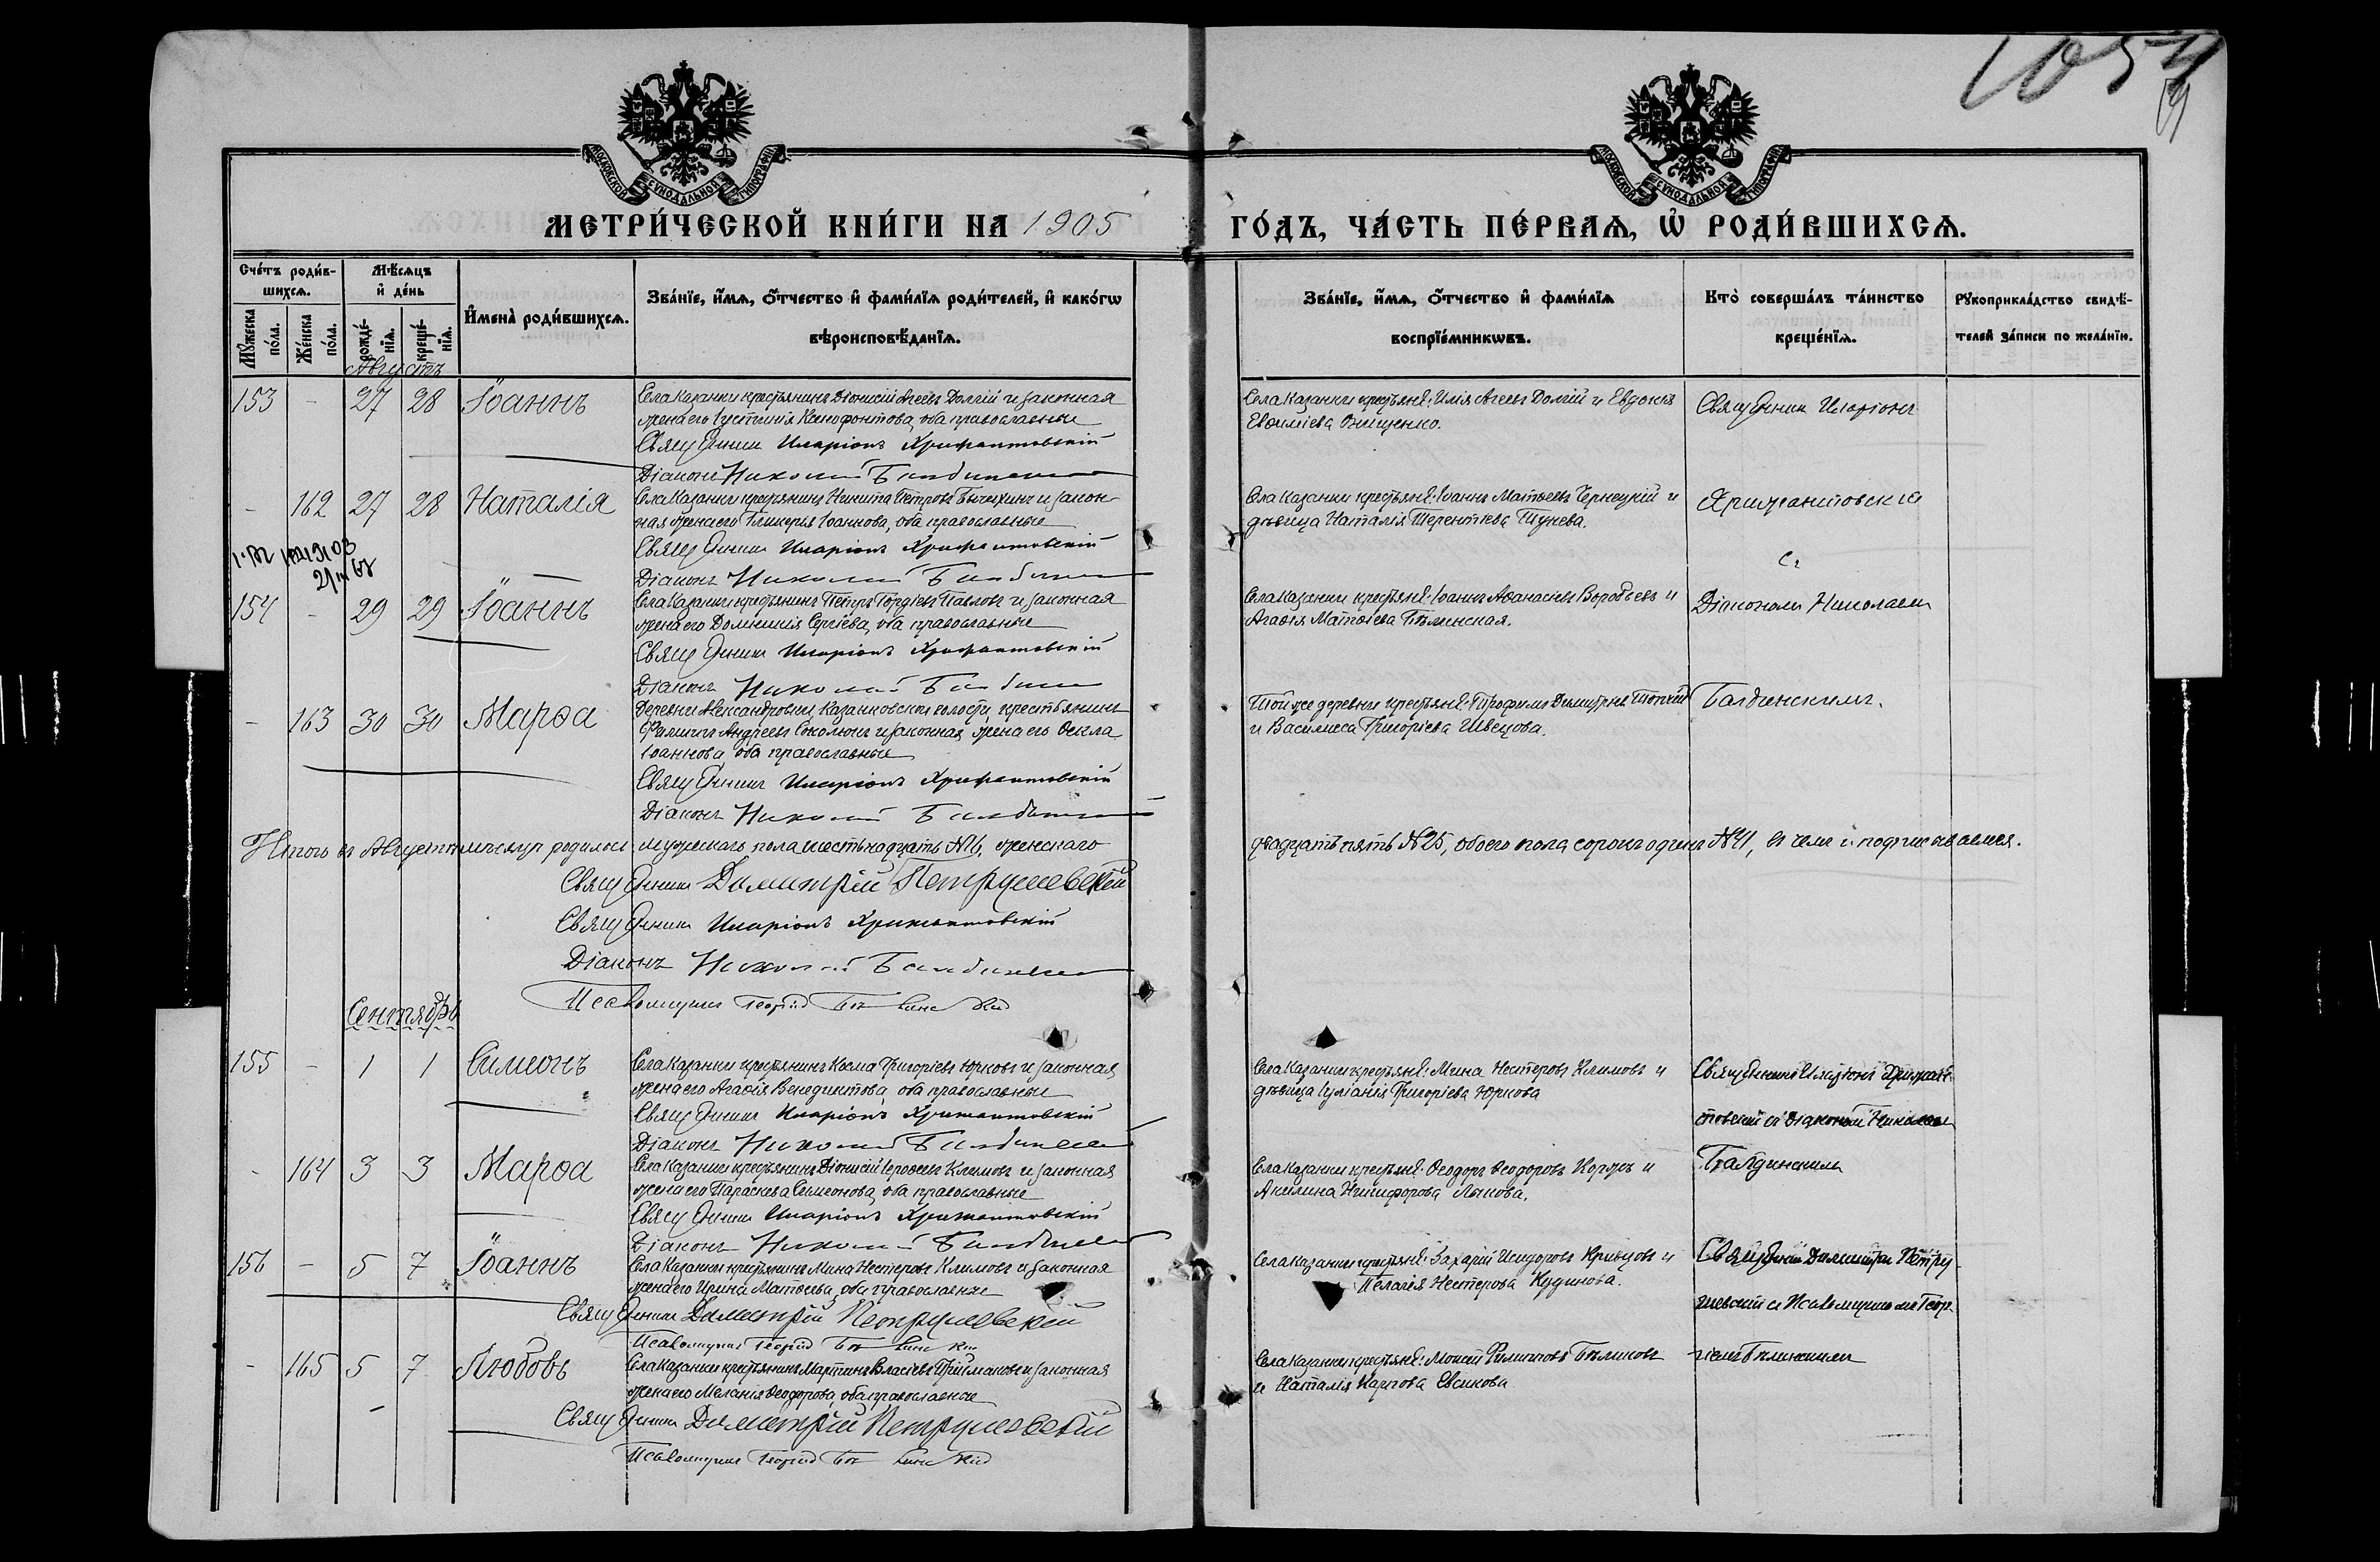 1054
МОСКОВСКОЙ СѴНОДАЛЬНОЙ ТИПОГРАФІИ
МОСКОВСКОЙ СѴНОДАЛЬНОЙ ТИПОГРАФІИ
МЕТРИ́ЧЕСКОЙ КНИ́ГИ НА 1905 ГО́ДЪ, ЧА́СТЬ ПЕ́РВАѦ, Ѡ҆ РОДИ́ВШИХСѦ.
Сче́тъ роди́в-
шихсѧ.
Мꙋ́жеска по́ла.
Же́нска по́ла.
Мѣ́сѧцъ
и҆ де́нь
рожде́-
нїѧ.
креще́-
нїѧ.
И҆мена̀ роди́вшихсѧ.
Зва́нїе, и҆́мѧ, ѻ҆́тчество и҆ фами́лїѧ роди́телей, и҆ како́гѡ
вѣроисповѣ́данїѧ.
Зва́нїе, и҆́мѧ, ѻ҆́тчество и҆ фами́лїѧ
воспрїе́мникѡвъ.
Кто̀ соверша́лъ та́инство
креще́нїѧ.
Рꙋкоприкла́дство свидѣ́-
телей за́писи по жела́нїю.
Августъ
153 - 27 28 Іоаннъ
Села Казанки крестьянинъ Діонисій Агеевъ Долгій и законная
жена его Іустинія Ксенофонтова, оба православные
Священникъ Иларіонъ Хрисантовскій
Діаконъ Николай
Села Казанки крестьяне: Илія Агеевъ Долгій и Евдокія
Евѳиміева Онищенко.
Священник Иларіонъ
- 162 27 28 Наталія
Села Казанки крестьянинъ Никита Петровъ и закон-
ная жена его Гликерія Іоаннова, оба православные
Священникъ Иларіонъ Хрисантовскій
Діаконъ Николай
Села Казанки крестьяне: Іоаннъ Матѳеевъ Чернецкій и
дѣвица Наталія Терентіева
Хрисантовскій
съ
154 - 29 29 Іоаннъ
Села Казанки крестьянинъ Петръ Гордіевъ Павловъ и законная
жена его Домникія Сергіева, оба православные
Священникъ Иларіонъ Хрисантовскій
Діаконъ Николай
Села Казанки крестьяне: Іоаннъ Аѳанасіевъ Воробьевъ и
Агаѳія Матѳіева Бѣлинская.
Діакономъ Николаемъ
- 163 30 30 Марѳа
Деревни Александровки, Казанковской волости, крестьянинъ
Филиппъ Андреевъ Соколюкъ и законная жена его Ѳекла
Іоаннова, оба православные
Священникъ Иларіонъ Хрисантовскій
Діаконъ Николай
Той же деревни крестьяне: Трофимъ Димитріевъ
и Василиса Григоріева Швецова.
Балдинскимъ.
Итого въ Августѣ мѣсяцѣ родилось мужескаго пола шестьнадцать №16, женскаго
двадцать пять №25, обоего пола сорокъ одинъ №41, въ чемъ и подписываемся.
Священникъ Димитрій Петрушевскій
Священникъ Иларіонъ Хрисантовскій
Діаконъ Николай
Псаломщикъ Георгій Бѣлинскій
Сентябрь
155 - 1 1 Симеонъ
Села Казанки крестьянинъ Косма Григоріевъ Юрковъ и законная
жена его Агаѳія Венедиктова, оба православные
Священникъ Иларіонъ Хрисантовскій
Діаконъ Николай
Села Казанки крестьяне: Мина Нестеровъ Климовъ и
дѣвица Іуліанія Григоріева Юркова
Священникъ Иларіонъ Хрисан-
товскій съ діакономъ Николаемъ
- 164 3 3 Марѳа
Села Казанки крестьянинъ Діонисій Іероѳеевъ Климовъ и законная
жена его Параскева Симеонова, оба православные
Священникъ Иларіонъ Хрисантовскій
Діаконъ Николай
Села Казанки крестьяне: Ѳеодоръ Ѳеодоровъ и
Акилина Никифорова Лыкова.
Балдинскимъ
156 - 5 7 Іоаннъ
Села Казанки крестьянинъ Мина Нестеровъ Климовъ и законная
жена его Ирина Матѳеева, оба православные
Священникъ Димитрій Петрушевскій
Псаломщикъ Георгій Бѣлинскій
Села Казанки крестьяне: Захарій Исидоровъ Кривцовъ и
Пелагія Нестерова Кудинова.
Священникъ Димитрій Петру-
шевскій съ Псаломщикомъ Геор-
- 165 5 7 Любовь
Села Казанки крестьянинъ Мартинъ Власіевъ Пріймаковъ и законная
жена его Меланія Ѳеодорова, оба православные
Священникъ Димитрій Петрушевскій
Псаломщикъ Георгій Бѣлинскій
Села Казанки крестьяне: Моисей Филипповъ Бѣликовъ
и Наталія Карпова Евсикова
гіемъ Бѣлинскимъ